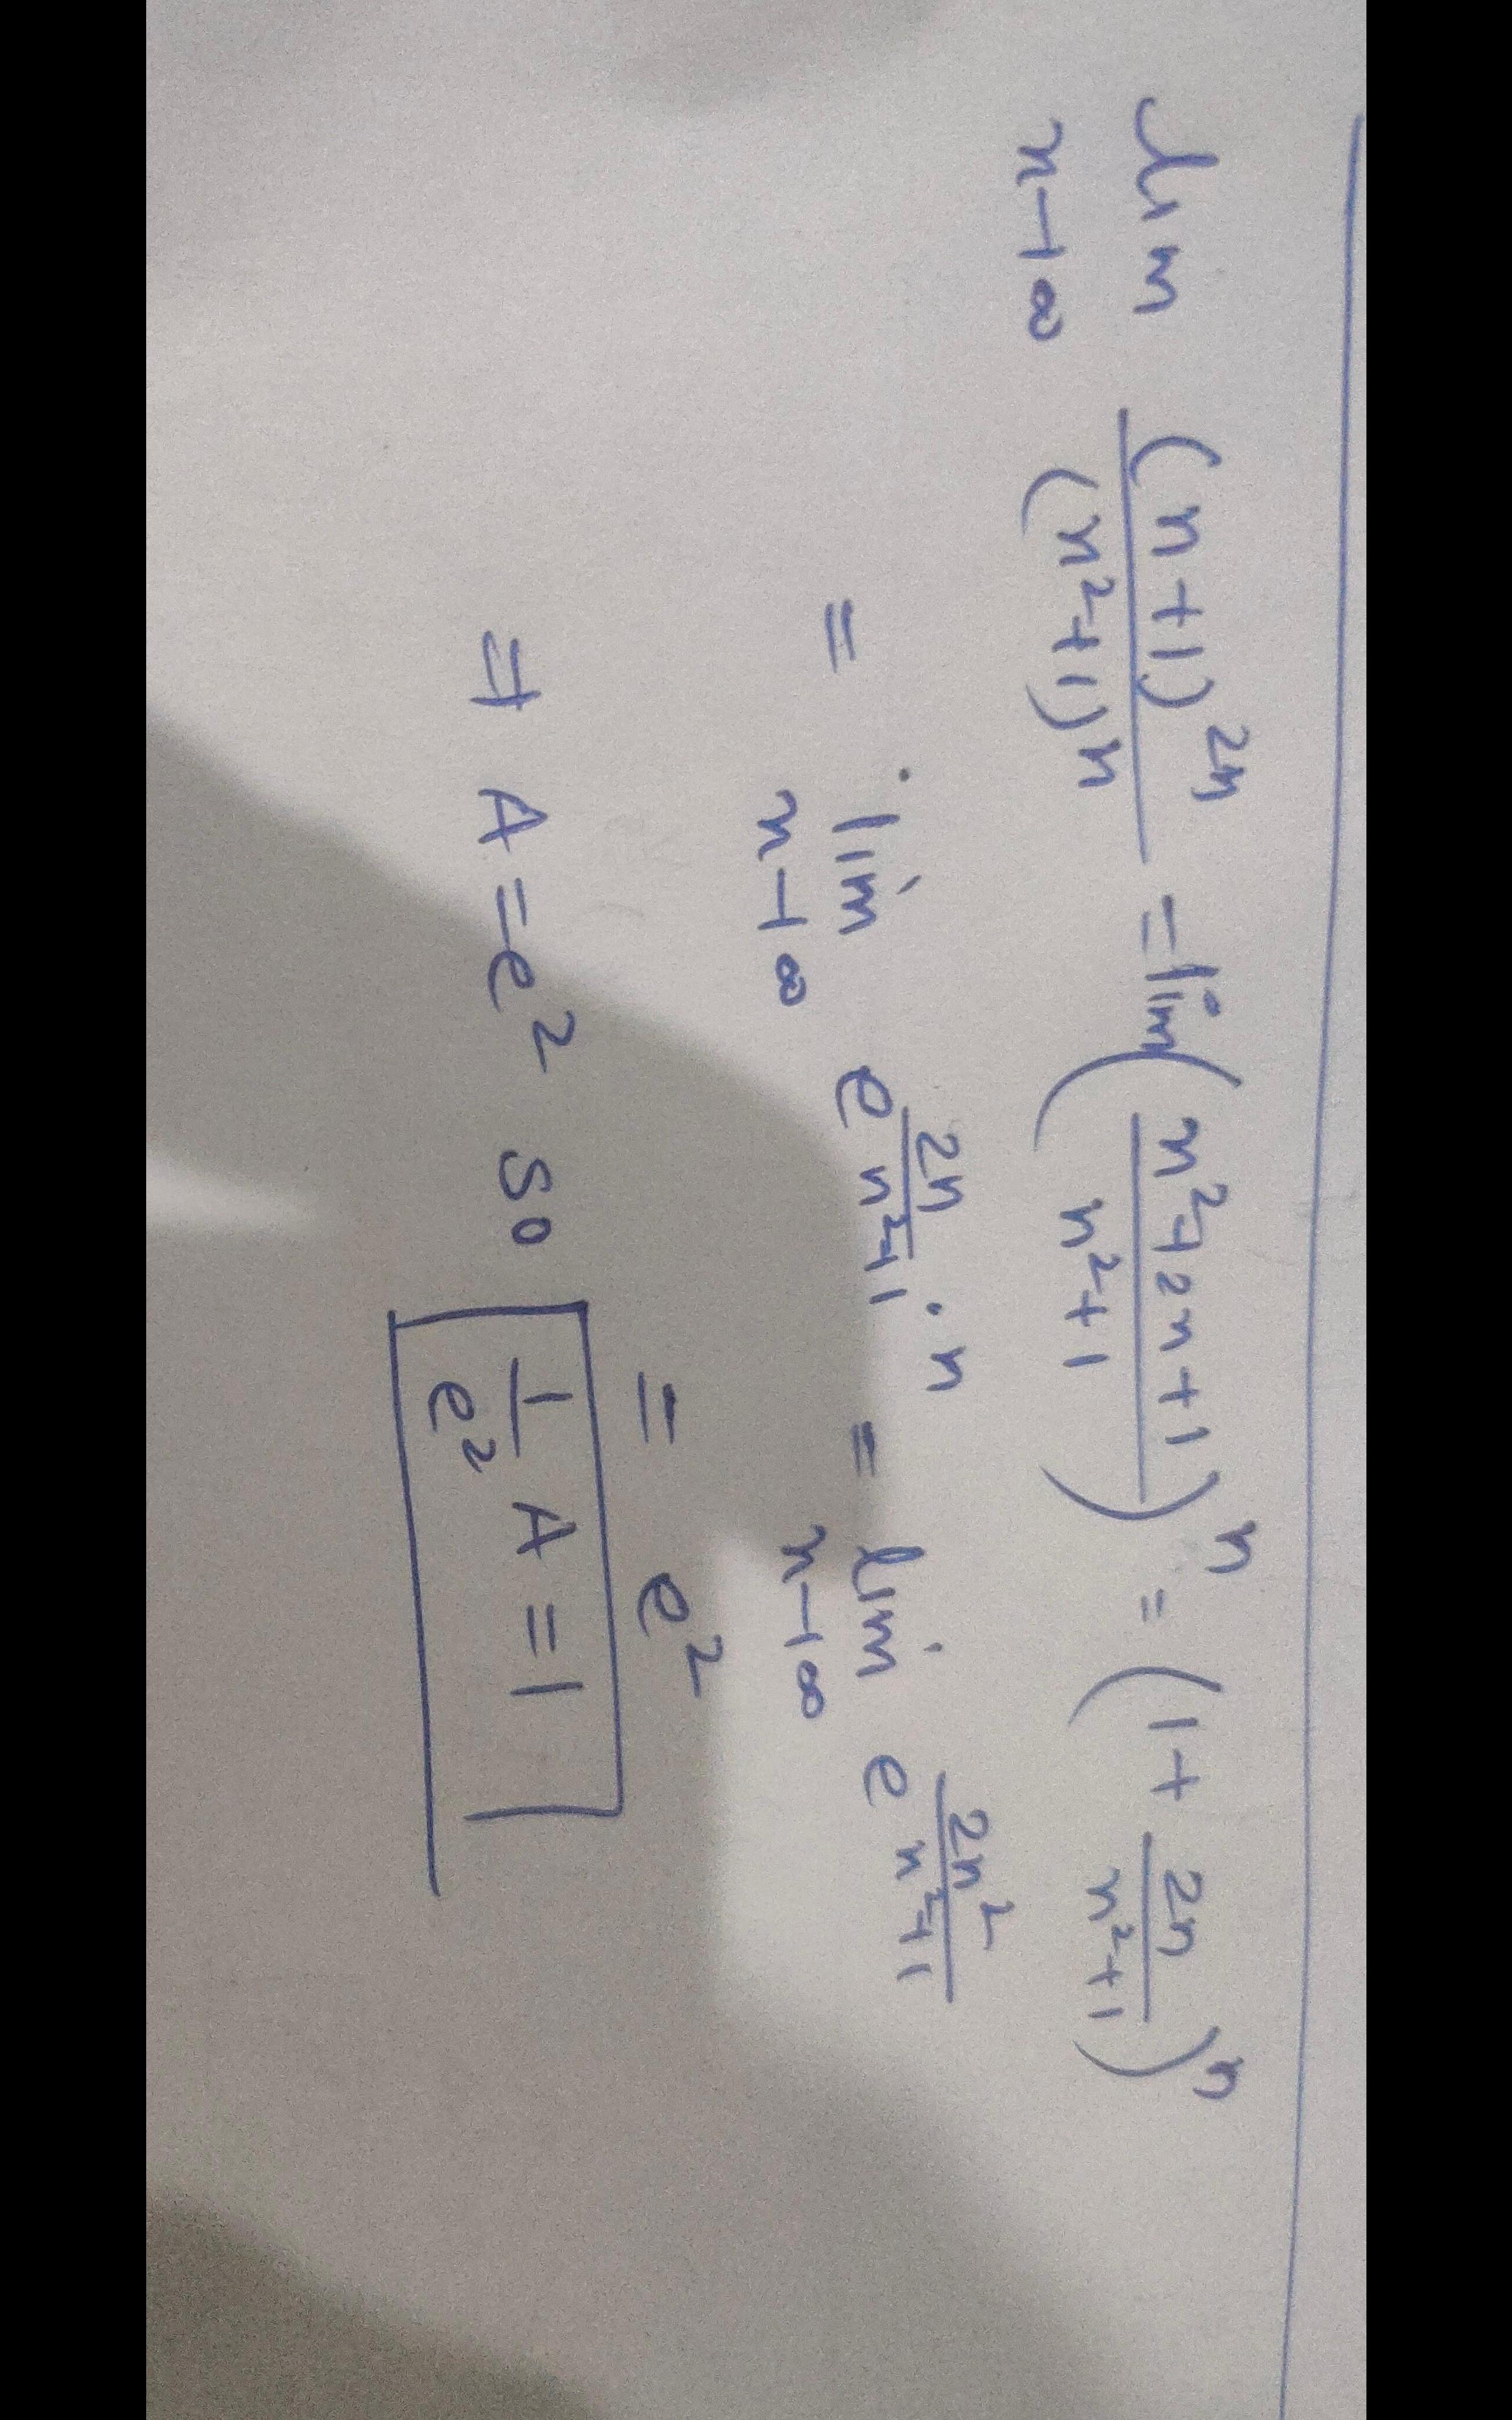 lim n→∞ (n+1)^2n / (n²+1)^n = lim ( (n²+2n+1) / (n²+1) )^n = (1 + 2n/(n²+1))^n
= lim n→∞ e^(2n/(n²+1) · n) = lim n→∞ e^(2n²/(n²+1))
= e²
⇒ A = e² so 1/e² A = 1